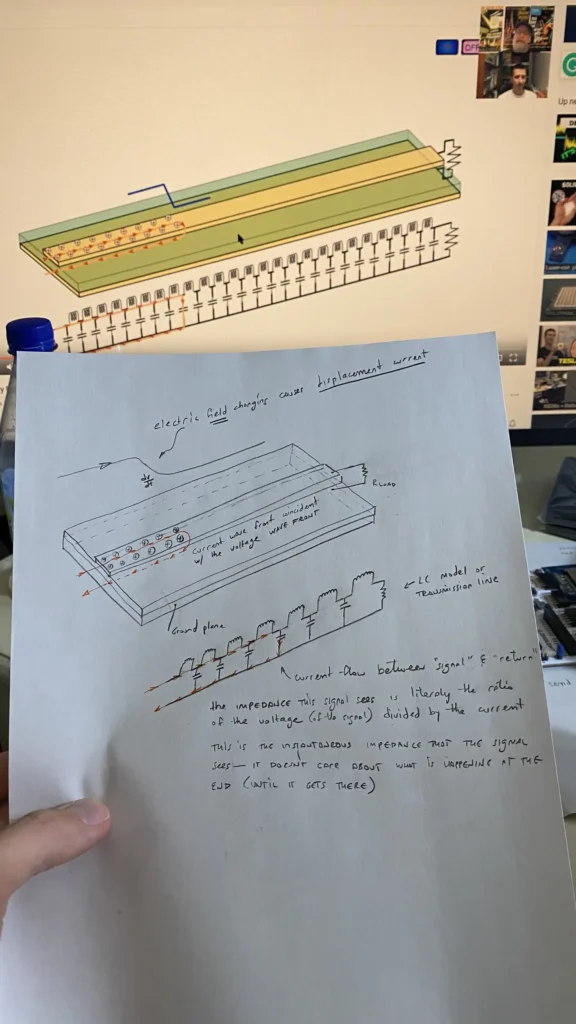 OFF
Up ne
electric field changing causes displacement current
dv
dt
RLOAD
current wave front coincident
w/ the voltage WAVE FRONT
Ground plane
LC MODEL OF
TRANSMISSION LINE
current flow between "signal" & "return"
the IMPEDANCE this signal sees is literaly the ratio
of the voltage (of the signal) divided by the current
THIS IS THE INSTANTANEOUS IMPEDANCE THAT THE SIGNAL
SEES — IT DOESNT CARE ABOUT WHAT IS HAPPENING AT THE
END (UNTIL IT GETS THERE)
send